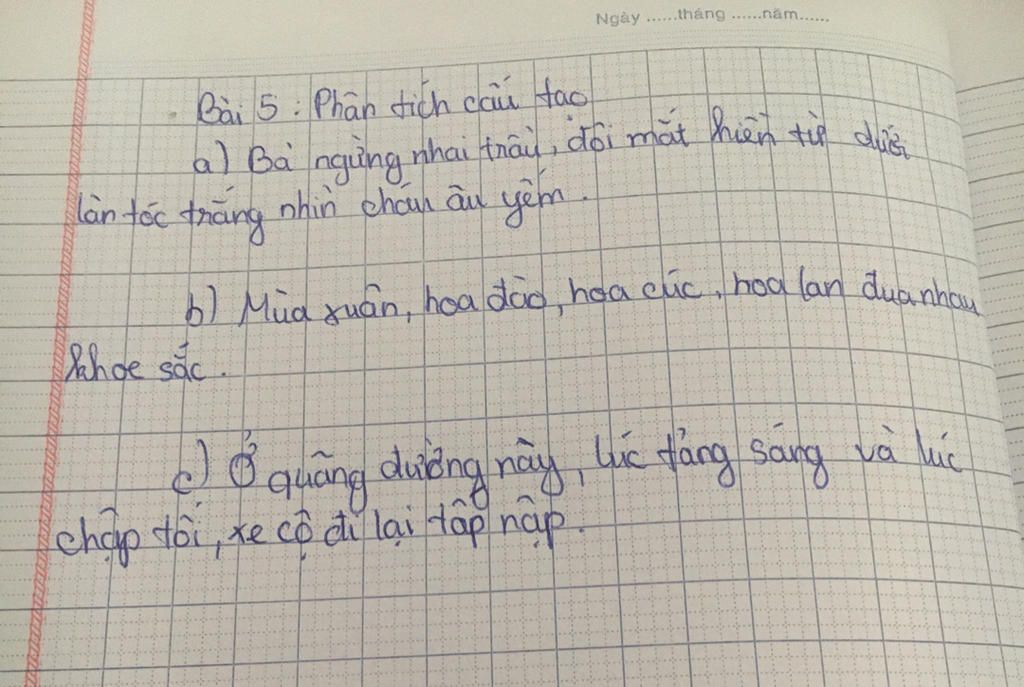 Ngày ......tháng ......năm......
Bài 5: Phân tích cấu tạo
a) Bà ngừng nhai trầu, đôi mắt hiền từ dưới
làn tóc trắng nhìn cháu âu yếm.
b) Mùa xuân, hoa đào, hoa cúc, hoa lan đua nhau
khoe sắc.
c) Ở quãng đường này, lúc tảng sáng và lúc
chập tối, xe cộ đi lại tấp nập.